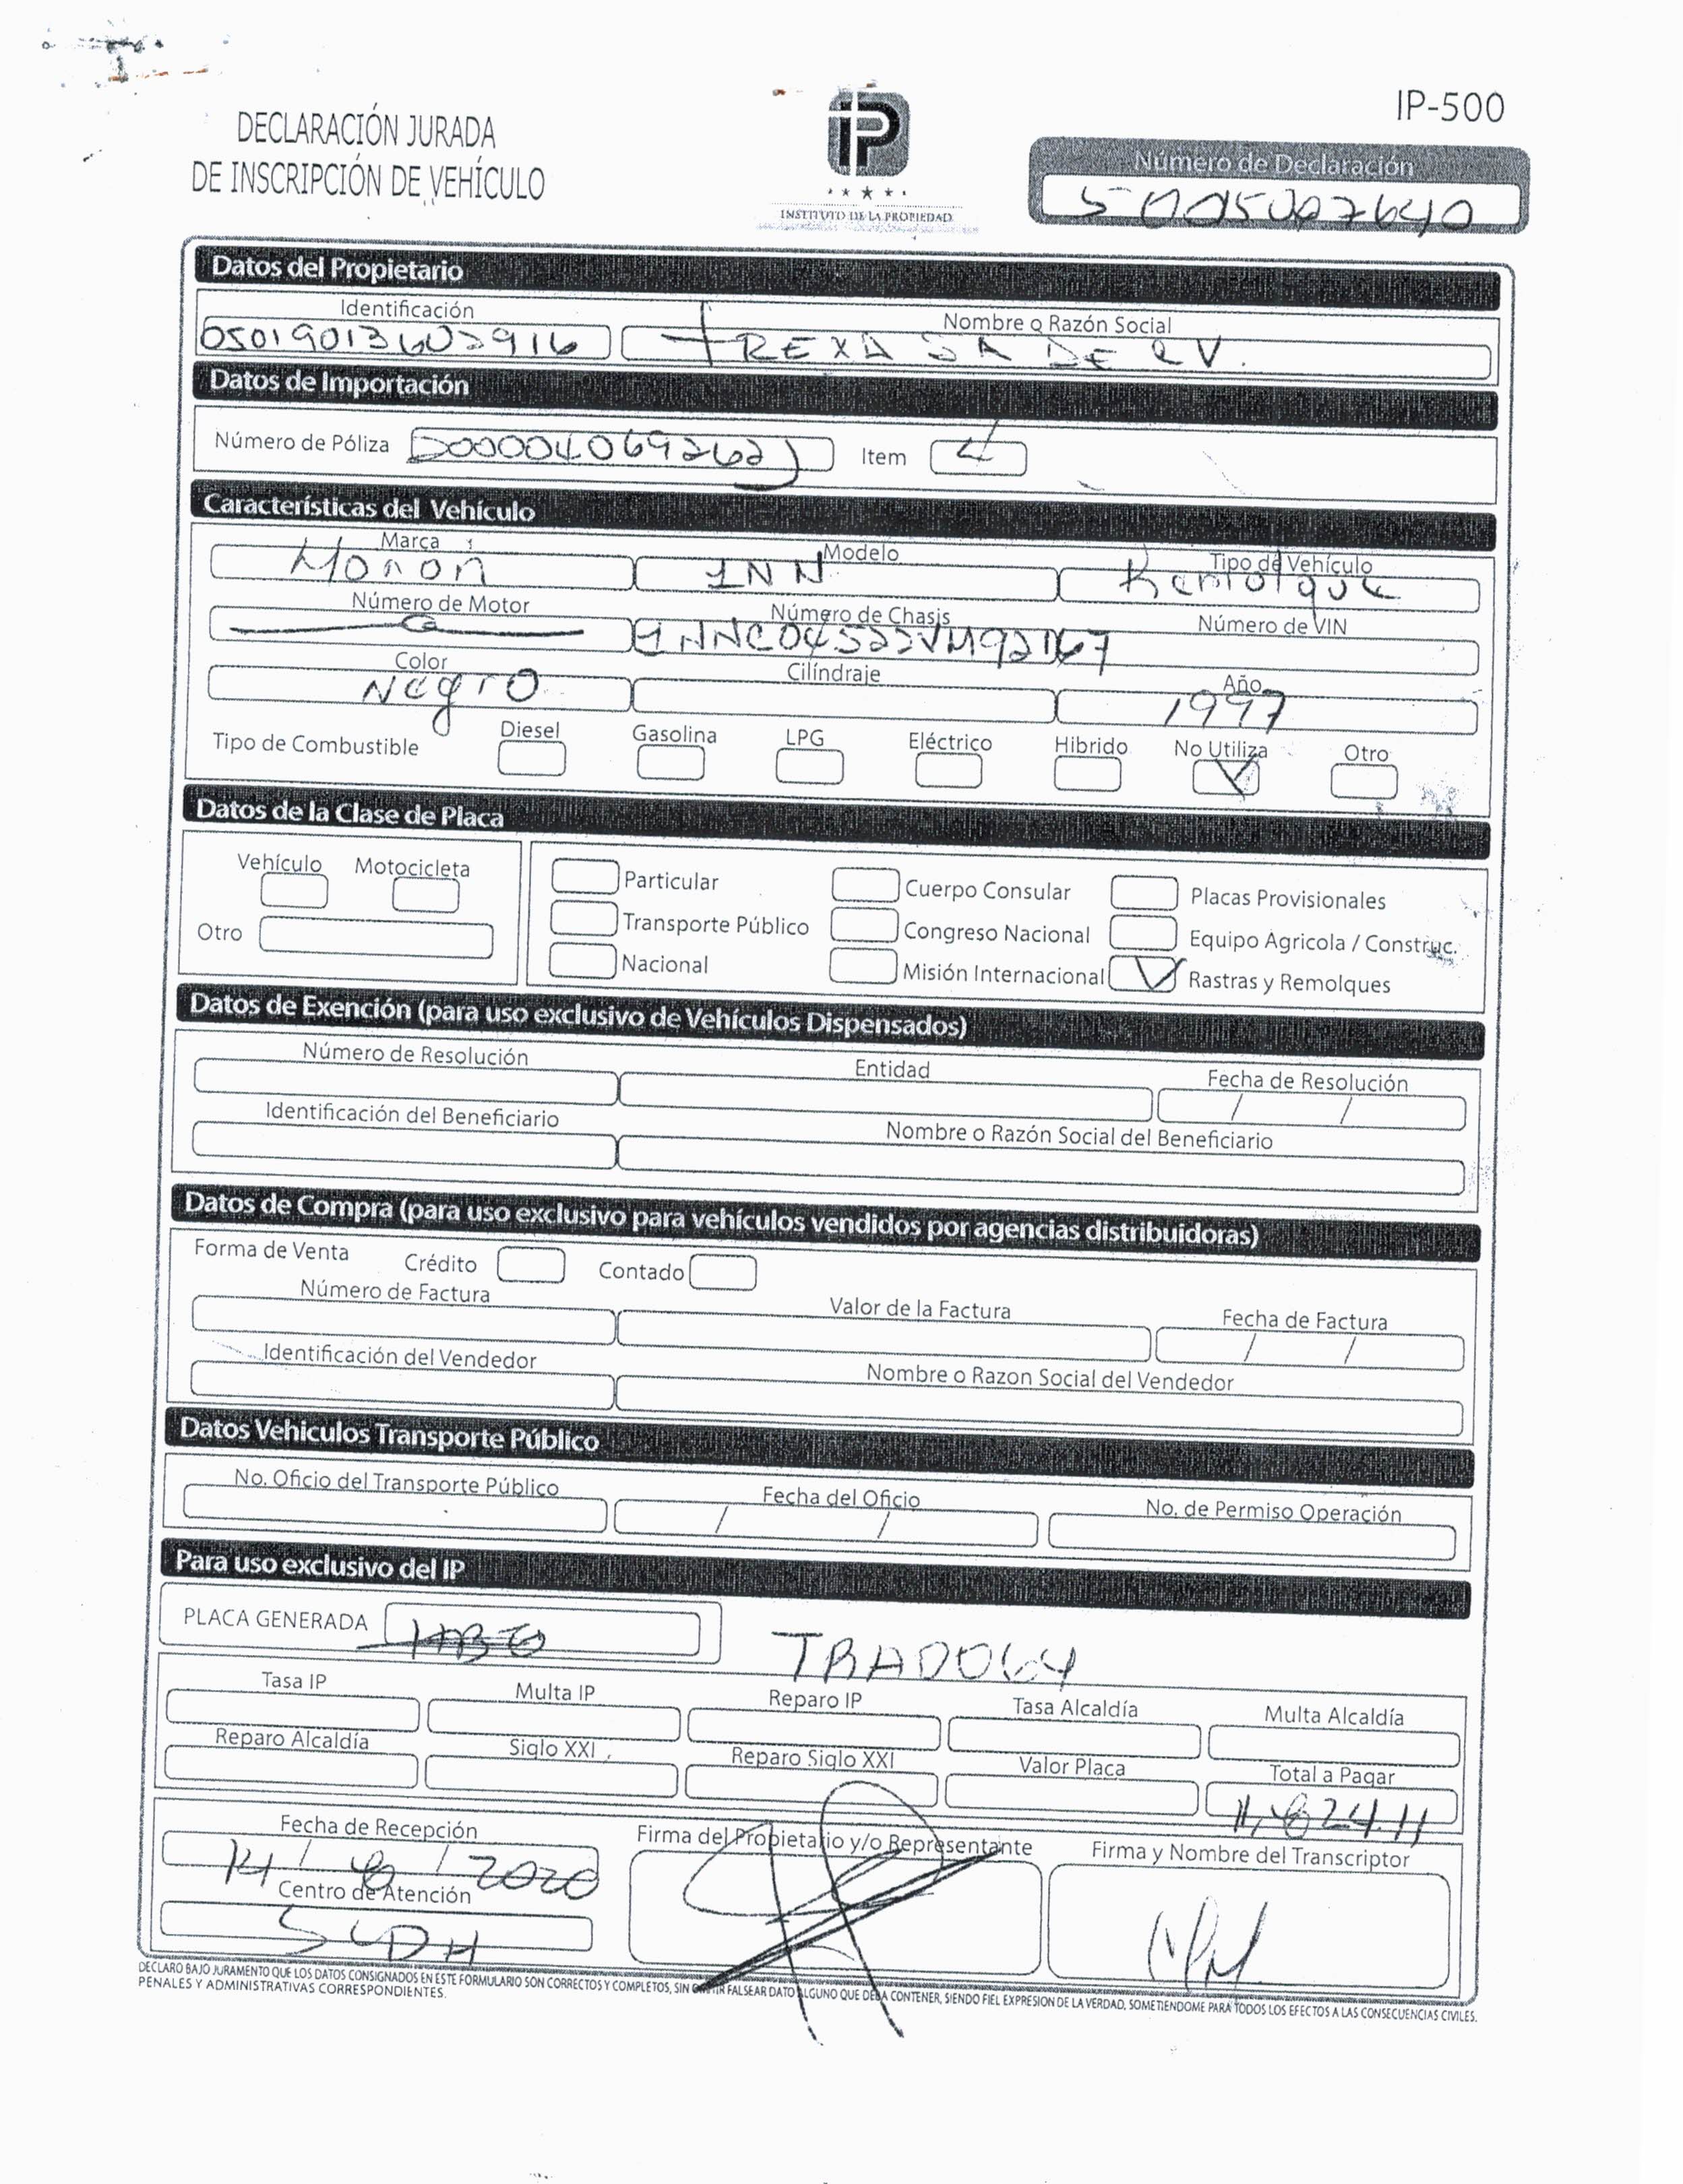 IP-500
DECLARACIÓN JURADA
DE INSCRIPCIÓN DE VEHÍCULO
iP
INSTITUTO DE LA PROPIEDAD
Número de Declaración
Datos del Propietario
Identificación Nombre o Razón Social
REXA SA DE CV.
Datos de Importación
Número de Póliza Item 4
Características del Vehículo
Marca Modelo Tipo de Vehículo
Monon 1NN Remolque
Número de Motor Número de Chasis Número de VIN
Color Cilíndraje Año
Negro 1997
Tipo de Combustible Diesel Gasolina LPG Eléctrico Hibrido No Utiliza Otro
Datos de la Clase de Placa
Vehículo Motocicleta Particular Cuerpo Consular Placas Provisionales
Otro Transporte Público Congreso Nacional Equipo Agricola / Construc.
Nacional Misión Internacional Rastras y Remolques
Datos de Exención (para uso exclusivo de Vehículos Dispensados)
Número de Resolución Entidad Fecha de Resolución
/ /
Identificación del Beneficiario Nombre o Razón Social del Beneficiario
Datos de Compra (para uso exclusivo para vehículos vendidos por agencias distribuidoras)
Forma de Venta Crédito Contado
Número de Factura Valor de la Factura Fecha de Factura
/ /
Identificación del Vendedor Nombre o Razon Social del Vendedor
Datos Vehiculos Transporte Público
No. Oficio del Transporte Público Fecha del Oficio No. de Permiso Operación
/ /
Para uso exclusivo del IP
PLACA GENERADA
Tasa IP Multa IP Reparo IP Tasa Alcaldía Multa Alcaldía
Reparo Alcaldía Siglo XXI Reparo Siglo XXI Valor Placa Total a Pagar
Fecha de Recepción Firma del Propietario y/o Representante Firma y Nombre del Transcriptor
14 / / 2020
Centro de Atención
DECLARO BAJO JURAMENTO QUE LOS DATOS CONSIGNADOS EN ESTE FORMULARIO SON CORRECTOS Y COMPLETOS, SIN FALSEAR DATO ALGUNO QUE DEBA CONTENER, SIENDO FIEL EXPRESION DE LA VERDAD, SOMETIENDOME PARA TODOS LOS EFECTOS A LAS CONSECUENCIAS CIVILES.
PENALES Y ADMINISTRATIVAS CORRESPONDIENTES.